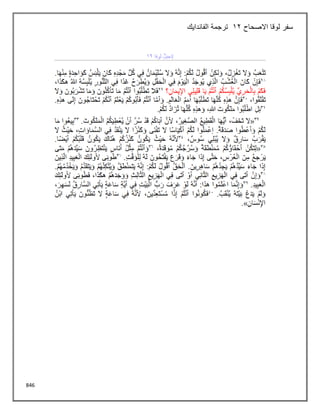 سفر لوقا الاصحاح ١٢ ترجمة الفاندايك
إنجيل لوقا ١٢
تَتْعَبُ وَلاَ تَغْزِلُ، وَلكِنْ أَقُولُ لَكُمْ: إِنَّهُ وَلاَ سُلَيْمَانُ فِي كُلِّ مَجْدِهِ كَانَ يَلْبَسُ كَوَاحِدَةٍ مِنْهَا.
فَإِنْ كَانَ الْعُشْبُ الَّذِي يُوجَدُ الْيَوْمَ فِي الْحَقْلِ وَيُطْرَحُ غَدًا فِي التَّنُّورِ يُلْبِسُهُ اللهُ هكَذَا،
فَكَمْ بِالْحَرِيِّ يُلْبِسُكُمْ أَنْتُمْ يَا قَلِيلِي الإِيمَانِ؟ فَلاَ تَطْلُبُوا أَنْتُمْ مَا تَأْكُلُونَ وَمَا تَشْرَبُونَ وَلاَ
تَقْلَقُوا، فَإِنَّ هذِهِ كُلَّهَا تَطْلُبُهَا أُمَمُ الْعَالَمِ. وَأَمَّا أَنْتُمْ فَأَبُوكُمْ يَعْلَمُ أَنَّكُمْ تَحْتَاجُونَ إِلَى هذِهِ.
بَلِ اطْلُبُوا مَلَكُوتَ اللهِ، وَهذِهِ كُلُّهَا تُزَادُ لَكُمْ.
«لاَ تَخَفْ، أَيُّهَا الْقَطِيعُ الصَّغِيرُ، لأَنَّ أَبَاكُمْ قَدْ سُرَّ أَنْ يُعْطِيَكُمُ الْمَلَكُوتَ. بِيعُوا مَا
لَكُمْ وَأَعْطُوا صَدَقَةً. اِعْمَلُوا لَكُمْ أَكْيَاسًا لاَ تَفْنَى وَكَنْزًا لاَ يَنْفَدُ فِي السَّمَاوَاتِ، حَيْثُ لاَ
يَقْرَبُ سَارِقٌ وَلاَ يُبْلِي سُوسٌ، لأَنَّهُ حَيْثُ يَكُونُ كَنْزُكُمْ هُنَاكَ يَكُونُ قَلْبُكُمْ أَيْضًا.
«لِتَكُنْ أَحْقَاؤُكُمْ مُمَنْطَقَةً وَسُرُجُكُمْ مُوقَدَةً، وَأَنْتُمْ مِثْلُ أُنَاسٍ يَنْتَظِرُونَ سَيِّدَهُمْ مَتَى
يَرْجعُ مِنَ الْعُرْسِ، حَتَّى إِذَا جَاءَ وَقَرَعَ يَفْتَحُونَ لَهُ لِلْوَقْتِ. طُوبَى لأُولَئِكَ الْعَبِيدِ الَّذِينَ
إِذَا جَاءَ سَيِّدُهُمْ يَجِدُهُمْ سَاهِرِينَ. اَلْحَقَّ أَقُولُ لَكُمْ: إِنَّهُ يَتَمَنْطَقُ وَيُتْكِئُهُمْ وَيَتَقَدَّمُ وَيَخْدُمُهُمْ.
وَإِنْ أَتَى فِي الْهَزِيعِ الثَّانِي أَوْ أَتَى فِي الْهَزِيعِ الثَّالِثِ وَوَجَدَهُمْ هكَذَا، فَطُوبَى لأُولَئِكَ
الْعَبِيدِ. وَإِنَّمَا اعْلَمُوا هذَا: أَنَّهُ لَوْ عَرَفَ رَبُّ الْبَيْتِ فِي أَيَّةِ سَاعَةٍ يَأْتِي السَّارِقُ لَسَهِرَ،
وَلَمْ يَدَعْ بَيْتَهُ يُنْقَبُ. فَكُونُوا أَنْتُمْ إِذًا مُسْتَعِدِّينَ، لأَنَّهُ فِي سَاعَةٍ لاَ تَظُنُّونَ يَأْتِي ابْنُ
الإِنْسَانِ».
846